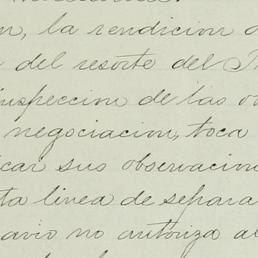 n, la rendicion d
del resorte del
inspeccion de las o
negociacion, toca
icar sus observacion
ta linea de separa
avio no autoriza al